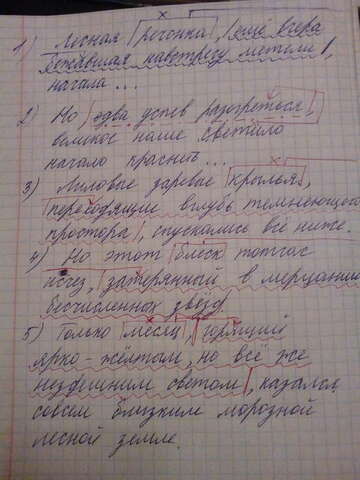 1) Лесная речонка, ещё вчера
бежавшая навстречу метели,
начала...
2) Но едва успев разогреться,
великое наше светило
начало краснеть...
3) Лиловые заревые крылья,
переходящие вглубь темнеющего
простора, спускались всё ниже.
4) Но этот блеск тотчас
исчез, затерянный в мерцании
бесчисленных звёзд.
5) Только месяц, горящий
ярко-жёлтым, но всё же
нездешним светом, казался
совсем близким морозной
лесной земле.